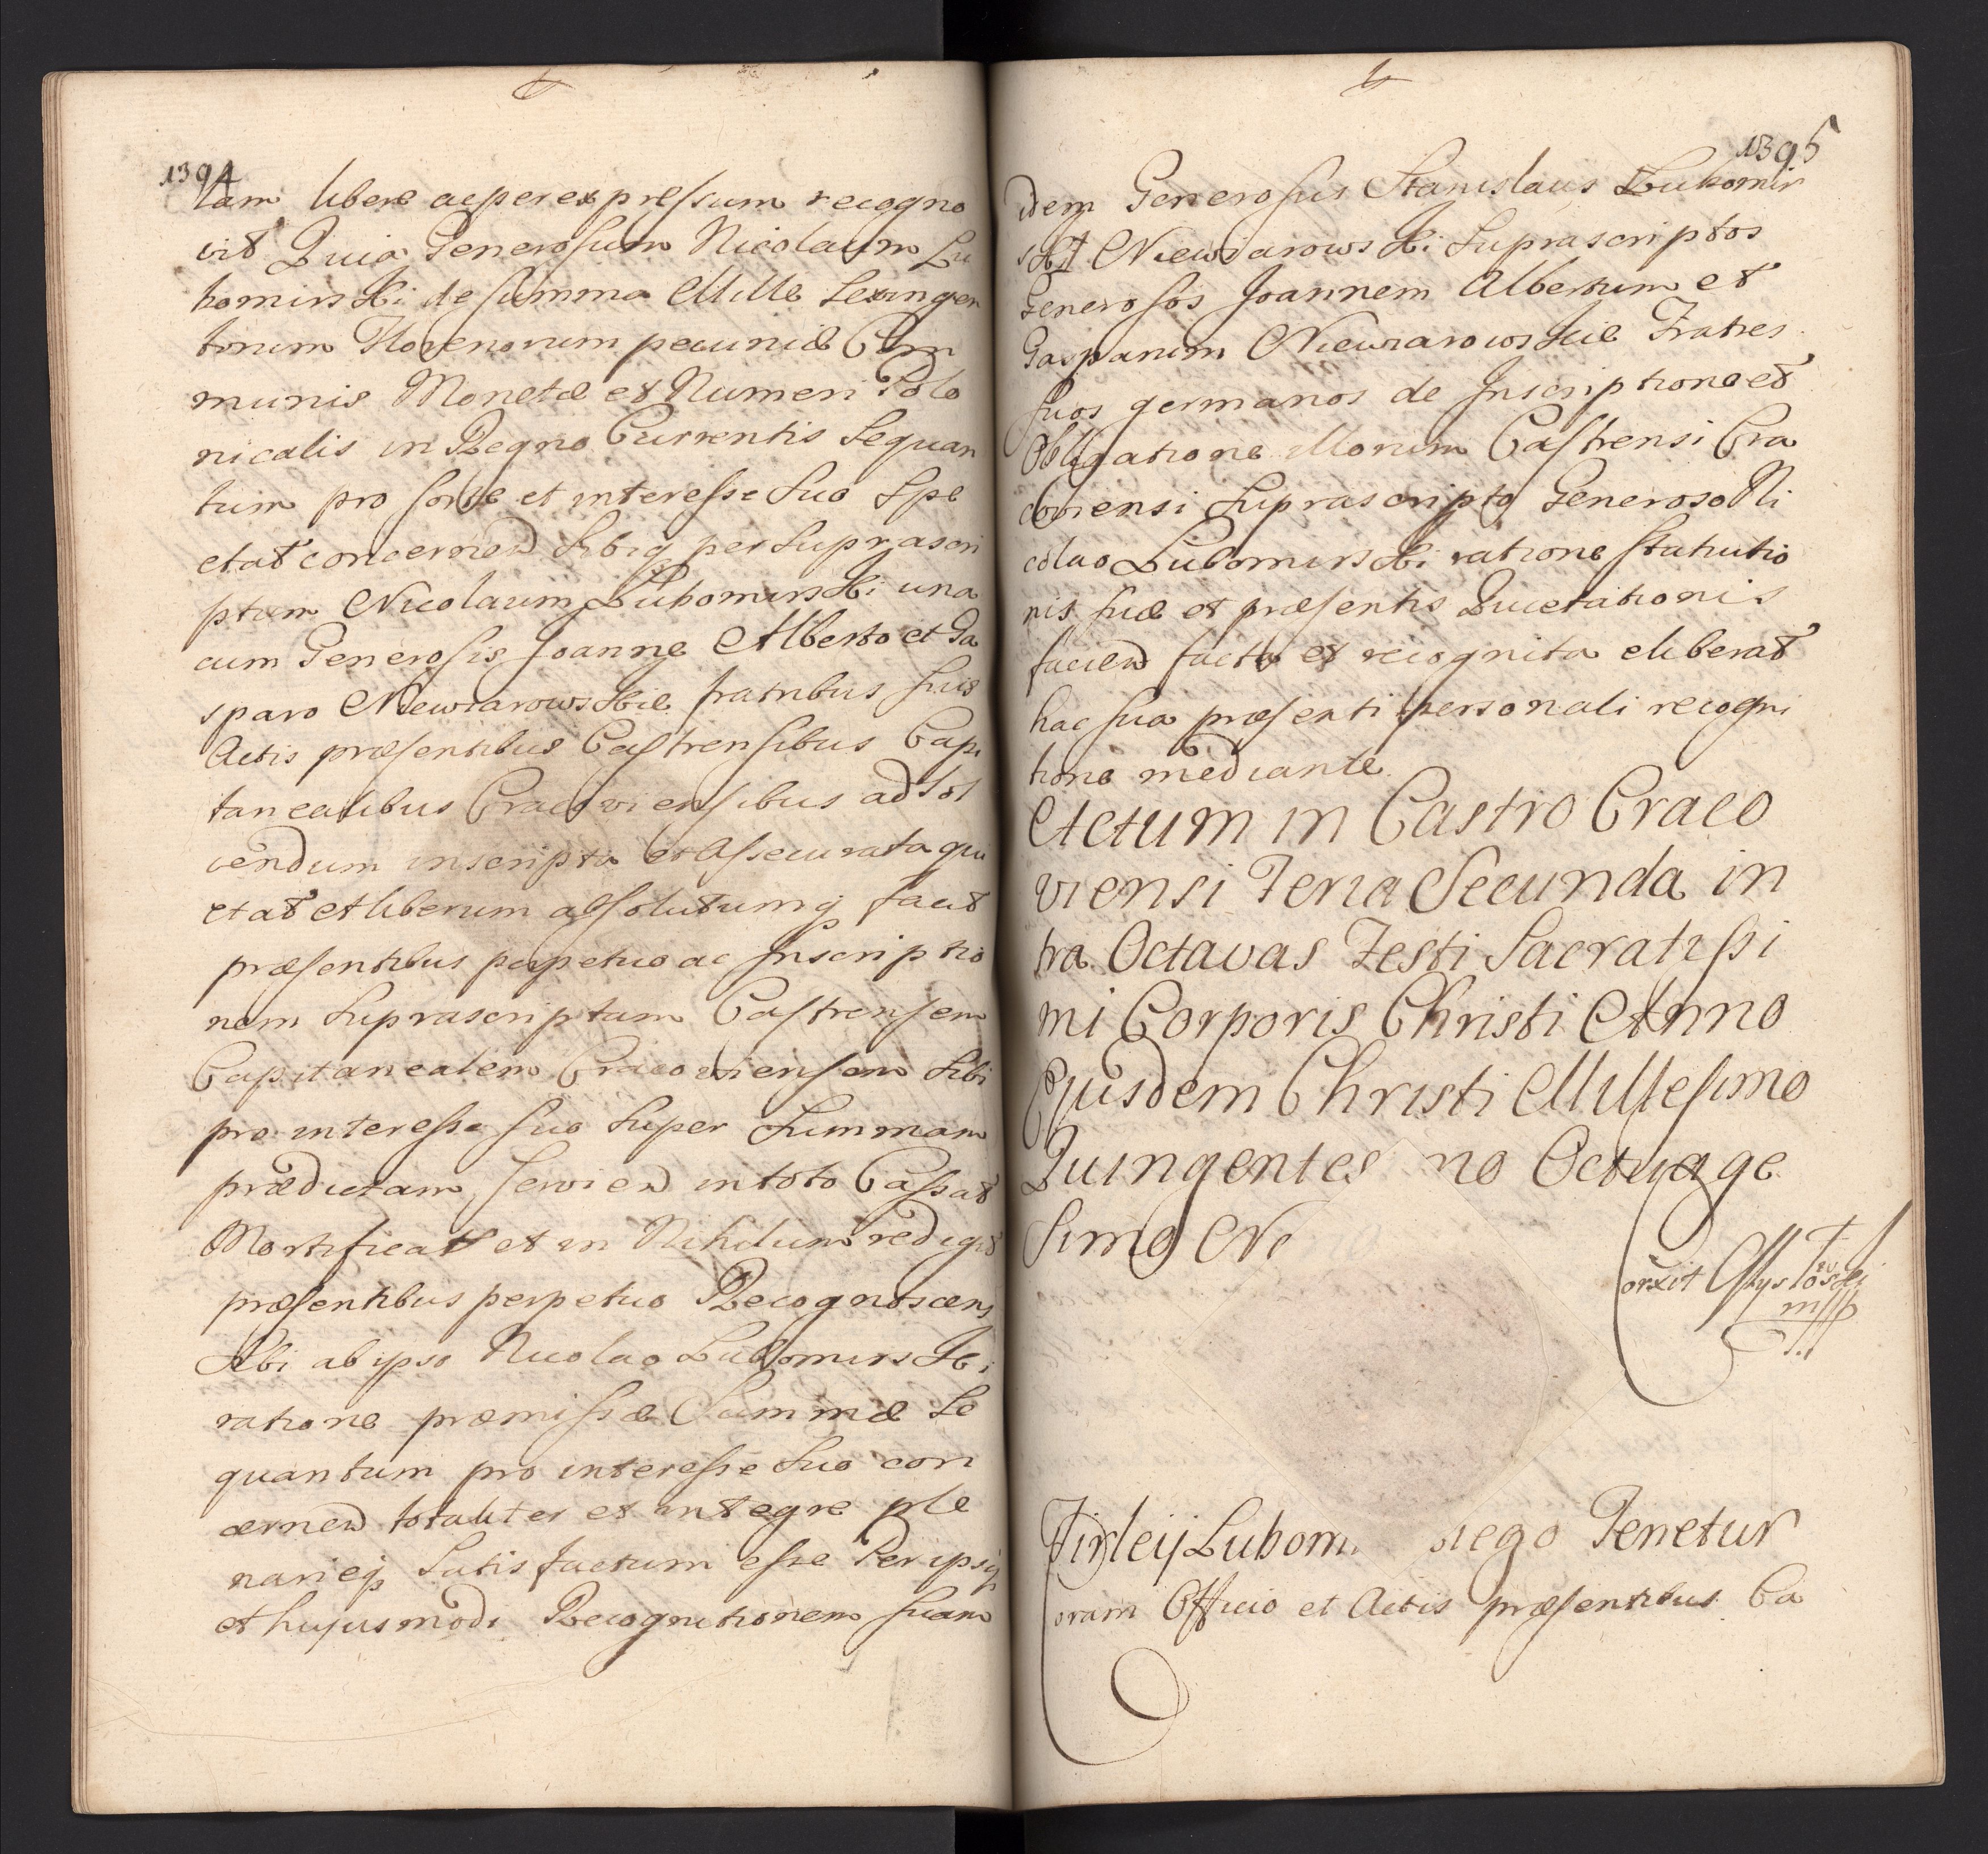 1394
tam libere ac per expræssum recogno
vit Quia Generosum Nicolaum Lu
bomirski de summa Mille Sexingen
torum Florenorum pecuniæ Com
munis Monetæ et Numeri Polo
nicalis in Regno Currentis Sequan
tum pro sorte et interesse Suo Spe
ctat concernen Sibiq per Suprascri
ptum Nicolaum Lubomirski una
cum Generosis Joanne Alberto et Ga
sparo Niewiarowskie fratribus suis
Actis præsentibus Castrensibus Capi
tanealibus Cracoviensibus ad Sol
vendum inscripta et Assecurata qui
etat et liberum absolutumq facit
præsentibus perpetuo ac Inscriptio
nem Suprascriptam Castrensem
Capitanealem Cracoviensem Sibi
pro interesse suo Super Summam
prædictam servien in toto Cassat
Mortificat et in Nihilum redigit
præsentibus perpetuo Recognoscens
Sibi ab ipso Nicolao Lubomirski
ratione præmissæ Summæ Se
quantum pro interesse Suo con
cernen totaliter et integre ple
narieq Satisfactum esse Per ipsq
et hujusmodi Recognitionem suam
1395
idem Generosus Stanislaus Lubomir
ski Niewiarowski Suprascriptos
Generosos Joannem Albertum et
Gasparum Niewiarowskie Fratres
suos germanos de Inscriptione et
Obligatione illorum Castrensi Cra
coviensi Suprascripto Generoso Ni
colao Lubomirski ratione statutio
nis suæ et præsentis Quietationis
facien facta et recognita eliberat
hac sua præsenti personali recogni
tione mediante
Actum in Castro Craco
viensi Feria Secunda in
tra Octavas Festi Sacratissi
mi Corporis Christi Anno
Ejusdem Christi Millesimo
Quingentes no Octuage
simo N
Firleij Lubom iego Tenetur
Coram Officio et Actis præsentibus Ca